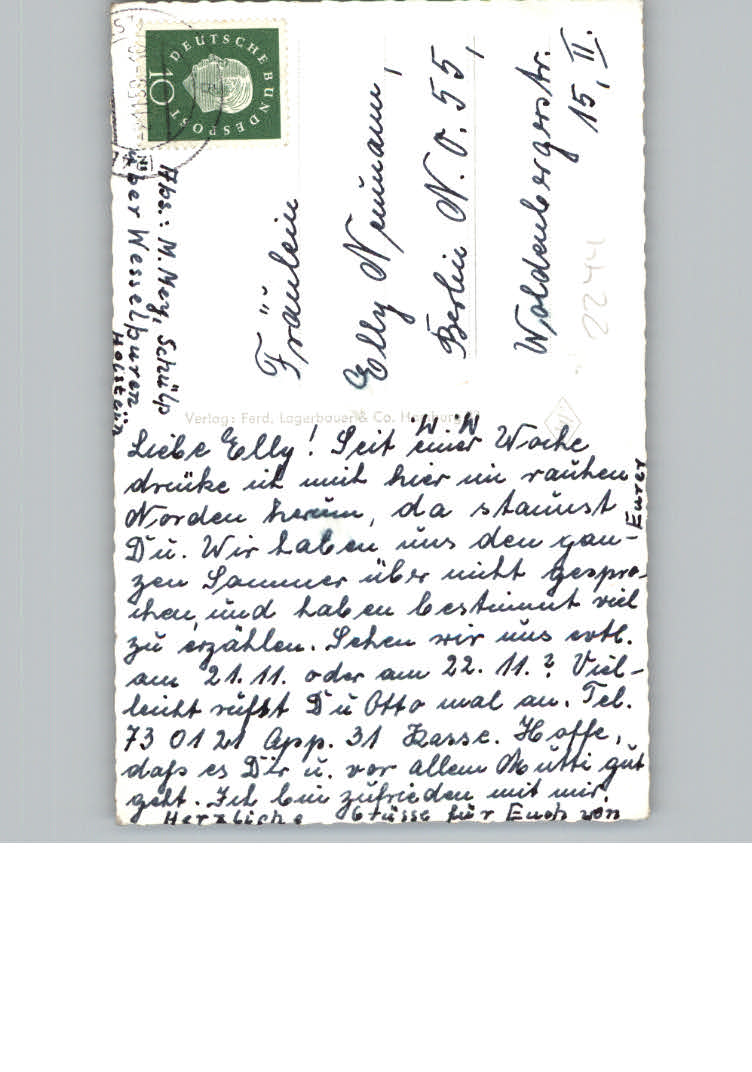 DEUTSCHE BUNDESPOST
10
Abs.: M. Mey, Schülp
über Wesselburen
Holstein
Fräulein
Elly Neumann,
Berlin N.O. 55,
Woldenbergerstr.
15, II.
2244
Verlag: Ferd. Lagerbauer & Co. Hamburg
Liebe Elly! Seit einer Woche
drücke ich mich hier im rauhen
Norden herum, da staunst
Du. Wir haben uns den gan-
zen Sommer über nicht gespro-
chen, und haben bestimmt viel
zu erzählen. Sehen wir uns evtl.
am 21.11. oder am 22.11.? Viel-
leicht rufst Du Otto mal an. Tel.
73 01 21 App. 31 Kasse. Hoffe,
daß es Dir u. vor allem Mutti gut
geht. Ich bin zufrieden mit mir.
Herzliche Grüsse für Euch von
Eurer
M. M